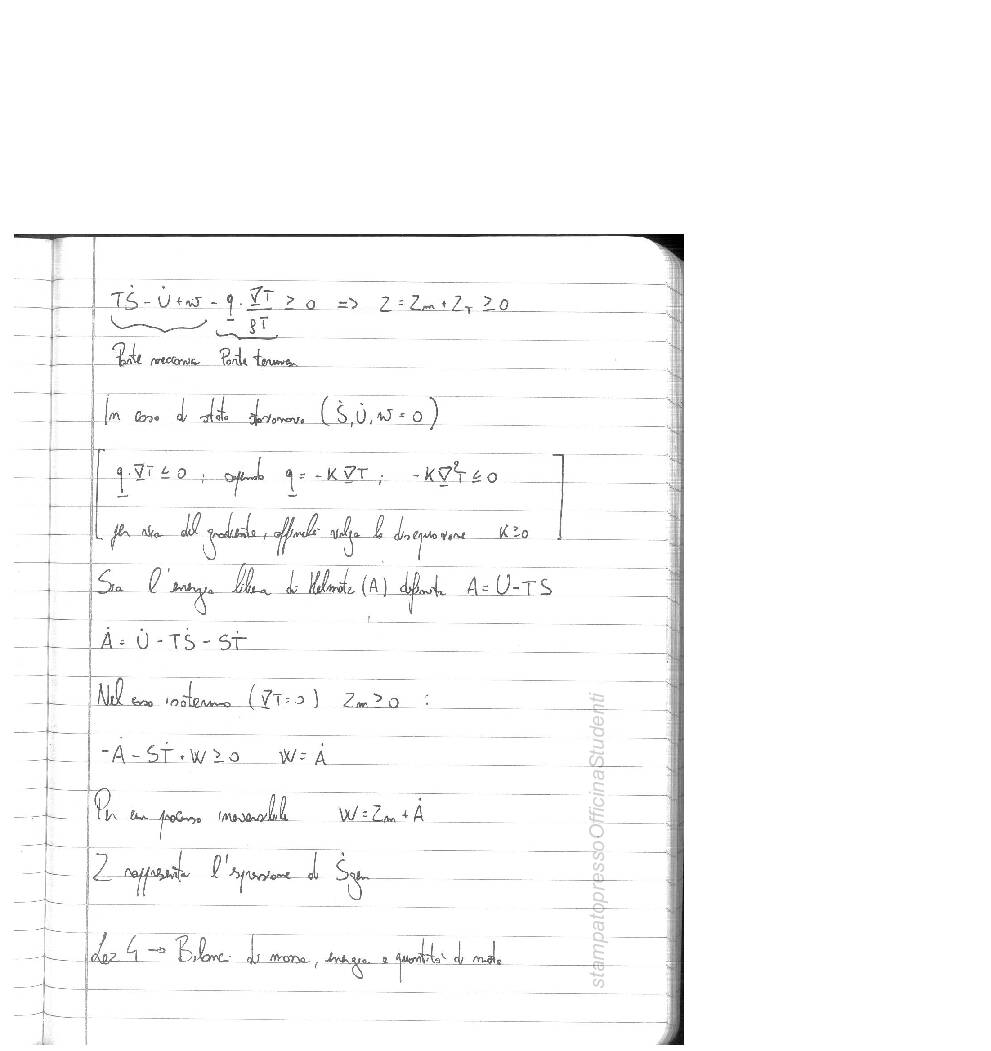 TṠ - U̇ + w - q · ∇T/ρT ≥ 0 => Z = Zm + ZT ≥ 0
Parte meccanica Parte termica
In caso di stato stazionario (Ṡ, U̇, w = 0)
q · ∇T ≤ 0 ; q = -K ∇T ; -K ∇²T ≤ 0
per via del gradiente, affinché valga la disequazione K ≥ 0
Sia l'energia libera di Helmotz (A) definita A = U - TS
Ȧ = U̇ - TṠ - SṪ
Nel caso isotermo (∇T = 0) Zm ≥ 0 :
-Ȧ - SṪ + W ≥ 0 W = Ȧ
Per un processo irreversibile W = Zm + Ȧ
Z rappresenta l'espressione di Ṡgen
Lez 4 → Bilanci di massa, energia e quantità di moto
stampatopressoOfficinaStudenti